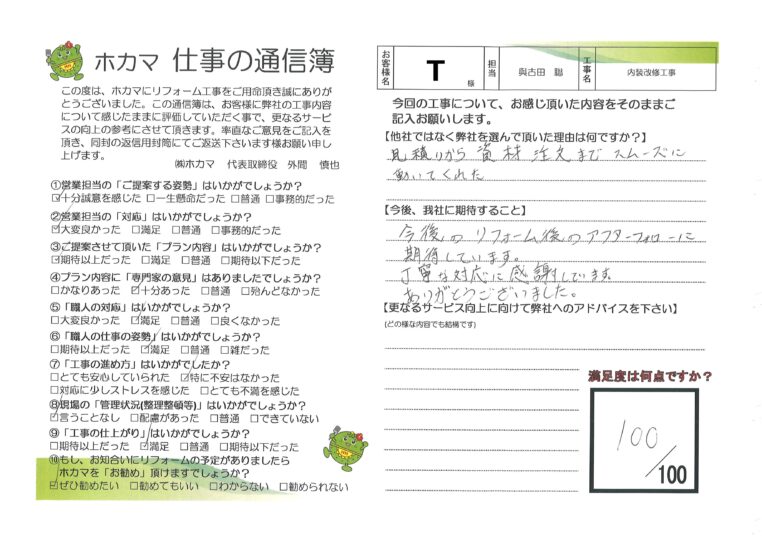 ホカマ 仕事の通信簿
この度は、ホカマにリフォーム工事をご用命頂き誠にありが
とうございました。この通信簿は、お客様に弊社の工事内容
について感じたままに評価していただく事で、更なるサービ
スの向上の参考にさせて頂きます。率直なご意見をご記入を
頂き、同封の返信用封筒にてご返送下さいます様お願い申し
上げます。
㈱ホカマ 代表取締役 外間 慎也
①営業担当の「ご提案する姿勢」はいかがでしょうか?
☑十分誠意を感じた □一生懸命だった □普通 □事務的だった
②営業担当の「対応」はいかがでしょうか?
☑大変良かった □満足 □普通 □事務的だった
③ご提案させて頂いた「プラン内容」はいかがでしょうか?
☑期待以上だった □満足 □普通 □期待以下だった
④プラン内容に「専門家の意見」はありましたでしょうか?
□かなりあった ☑十分あった □普通 □殆んどなかった
⑤「職人の対応」はいかがでしょうか?
□大変良かった ☑満足 □普通 □良くなかった
⑥「職人の仕事の姿勢」はいかがでしょうか?
□期待以上だった ☑満足 □普通 □雑だった
⑦「工事の進め方」はいかがでしたか?
□とても安心していられた ☑特に不安はなかった
□対応に少しストレスを感じた □とても不満を感じた
⑧現場の「管理状況(整理整頓等)」はいかがでしょうか?
☑言うことなし □配慮があった □普通 □できていない
⑨「工事の仕上がり」はいかがでしょうか?
□期待以上だった ☑満足 □普通 □期待以下だった
⑩もし、お知合いにリフォームの予定がありましたら
ホカマを「お勧め」頂けますでしょうか?
☑ぜひ勧めたい □勧めてもいい □わからない □勧められない
お客様名 T 様 担当 與古田 聡 工事名 内装改修工事
今回の工事について、お感じ頂いた内容をそのままご
記入お願いします。
【他社ではなく弊社を選んで頂いた理由は何ですか?】
見積りから資材注文までスムーズに
動いてくれた
【今後、我社に期待すること】
今後のリフォーム後のアフターフォローに
期待しています。
丁寧な対応に感謝しています
ありがとうございました。
【更なるサービス向上に向けて弊社へのアドバイスを下さい】
(どの様な内容でも結構です)
満足度は何点ですか?
100
/100